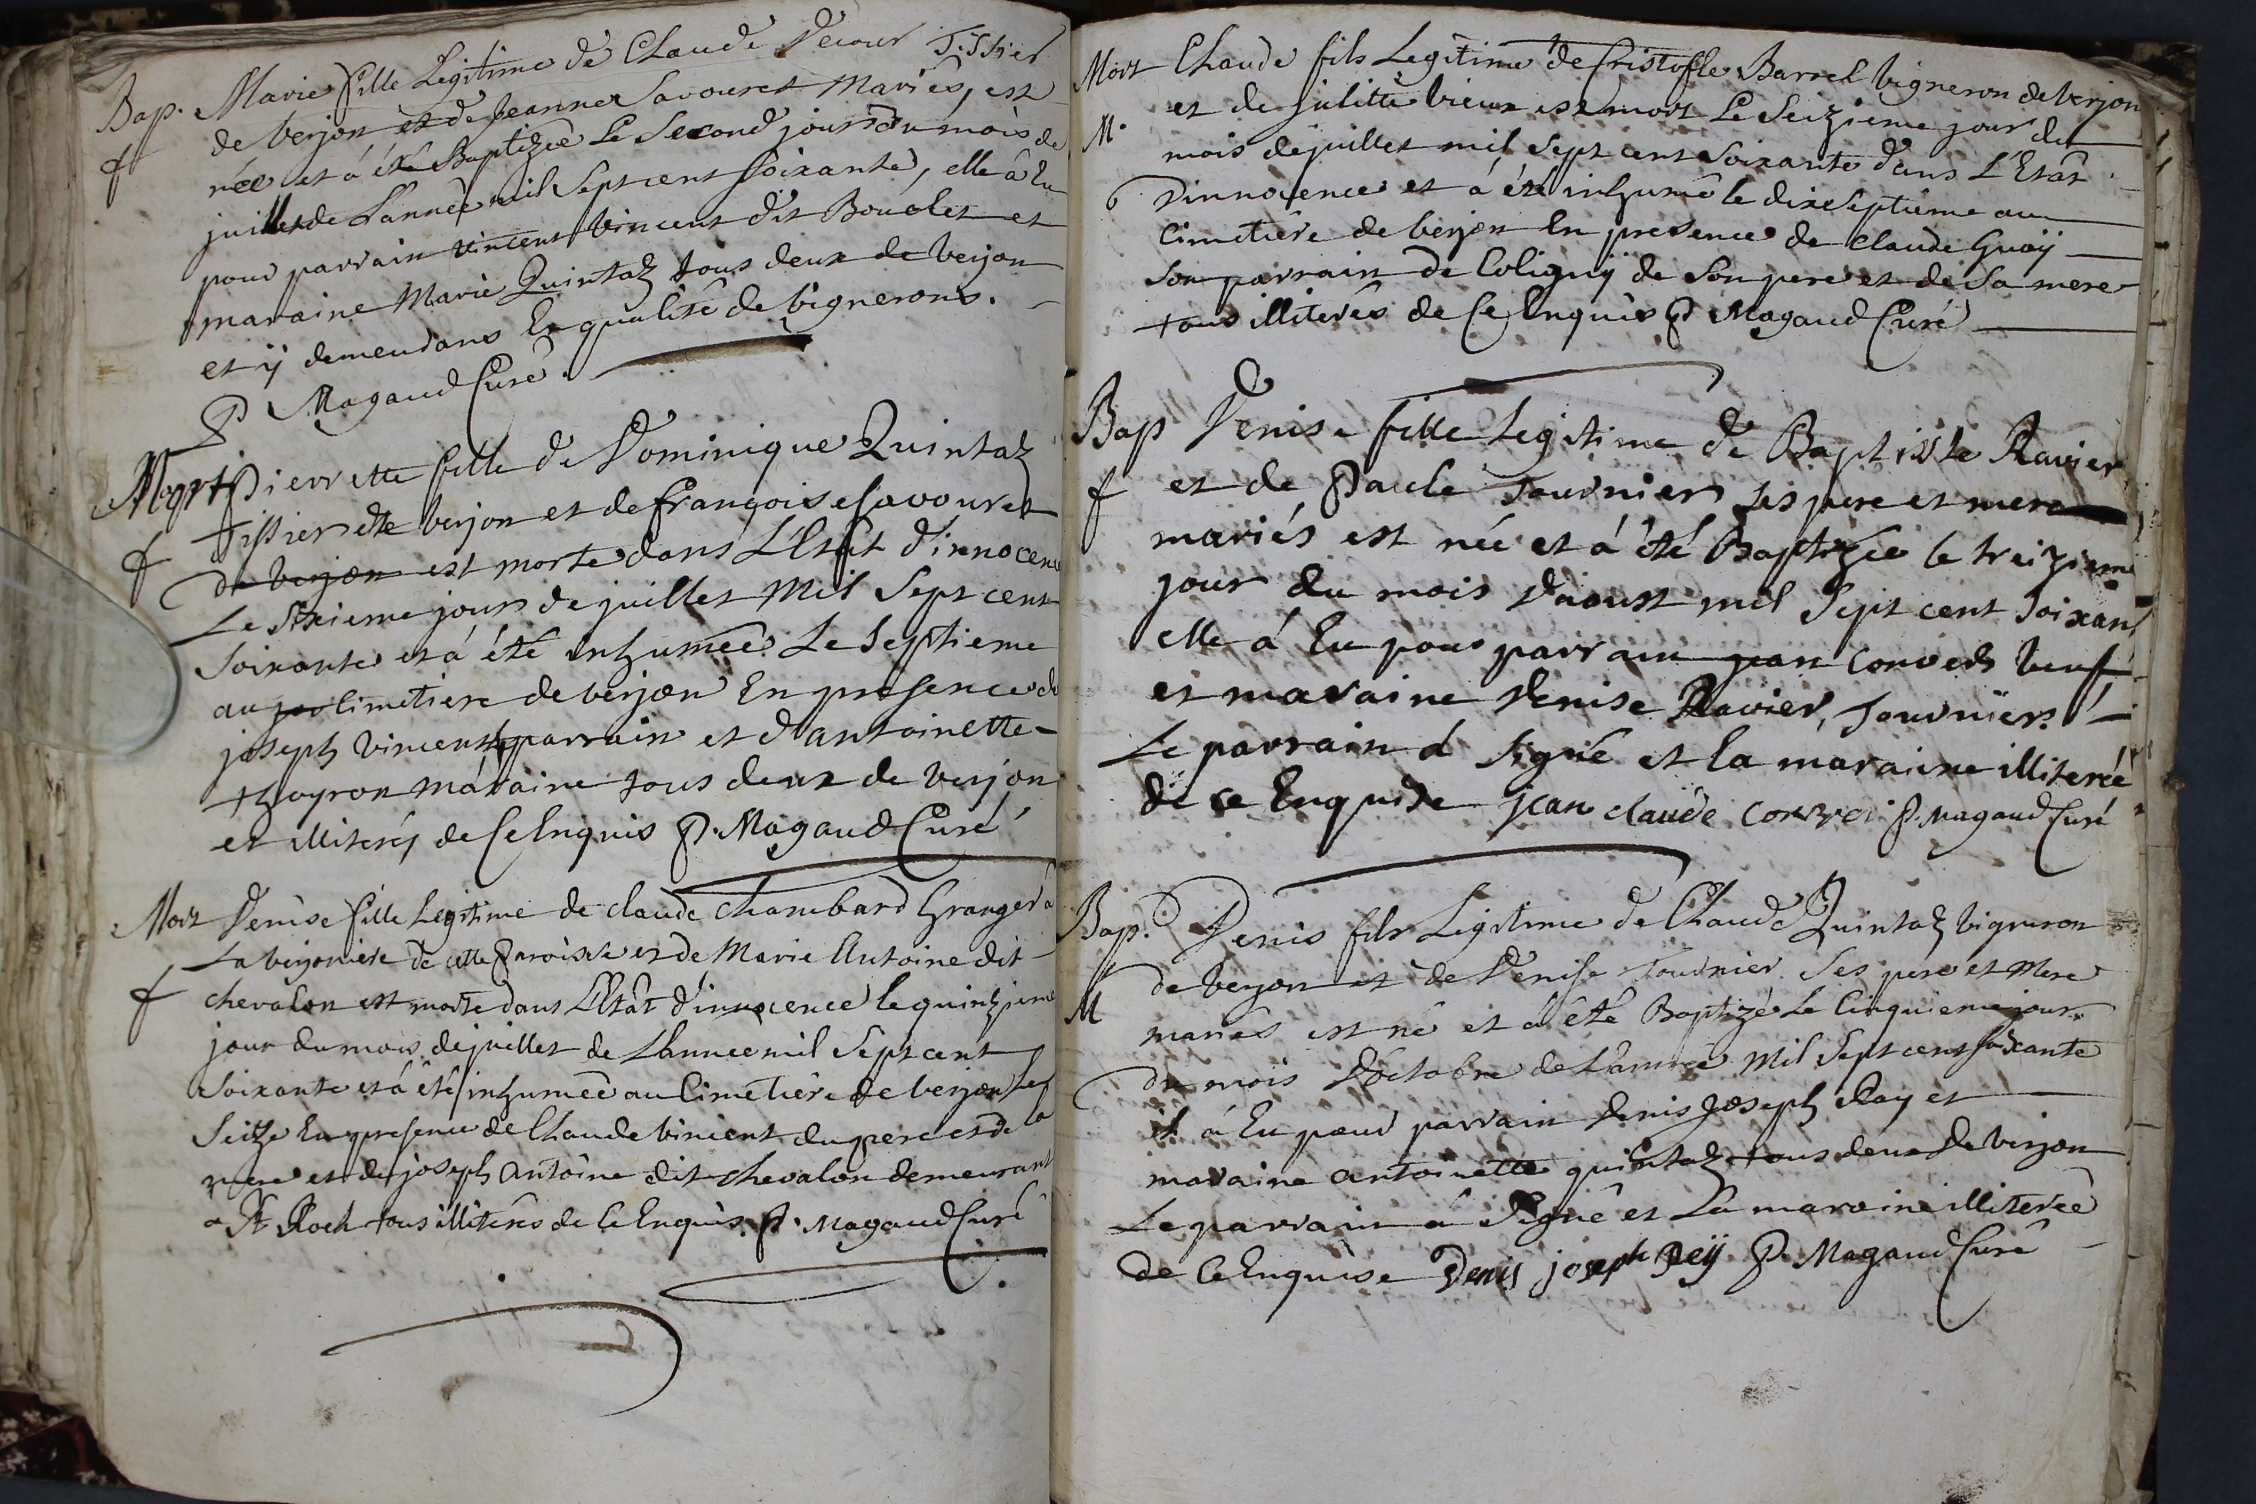 Bap. Marie fille Legitime de Claude Decour Tissier
de verjon et de Jeanne Savouret Mariés, est
f née et á été Baptizée Le Second jour du mois de
juillet de L'année mil Sept cent soixante, elle â Eu
pour parrain vincent vincent dit Bouolet et
maraine Marie Quintaz tous deux de verjon
et ÿ demeurans En qualité de vignerons.
P Magaud Curé
Mort Pierrette fille de Dominique Quintaz
Tissier de verjon et de françoise Savouret
f de verjon est morte dans L'Etât d'innocence
Le Sixieme jour de juillet Mil Sept cent
Soixante et á été inhumée Le Septieme
au cimetiere de verjon En presence de
joseph vincent parrain et d'antoinette
thoyron máraine tous deux de verjon
et illiterés de Ce Enquis P. Magaud Curé
Mort Denise fille Legitime de claude Chambard Granger a
La verjoniere de cette Paroisse et de Marie Antoine dit
f chevalon est morte dans L'Etât d'innocence le quinzieme
jour du mois de juillet de L'annee mil Sept cent
Soixante et á êté inhumeé au Cimetiêre de verjon Le
Seitze En presence de Claude vincent du pere et de la
mere et de joseph antoine dit chevalon demeurant
a St Roch tous illitérés de Ce Enquis. P. Magaud Curé
Mort Claude fils Legitime de Cristofle Barrel vigneron de verjon
et de julitte vieux est mort Le Seizieme jour du
M. mois de juillet mil Sept cent Soixante dans L'Etât
6 D'innocence et á été inhumê le dixseptieme au
Cimetiére de verjon En presence de claude Guaÿ
Son parrain de Colignÿ de Son pere et de Sa mere
tous illiterés de Ce Enquis P Magaud Curé
Bap Denise fille Legitime de Baptiste Ravier
f et de Paule Tournier Ses pere et mere
mariés est née et á été Baptizée le treizieme
jour du mois D'aoust mil Sept cent Soixant
elle á Eu pour parrain jean convers veuf
et maraine Denise Ravier, Tournier.
Le parrain á Signé et la maraine illiterée
de ce Enquise jean claude P. Magaud Curé
Bap. Denis fils Legitime de Claude Quintaz vigneron
de verjon et de Denise Tournier Ses pére et Mere
M mariés est né et á été Baptizé Le Cinquieme jour
du mois D'octobre de L'année Mil Sept cent soixante
il á Eu pour parrain Denis Joseph Ray et
maraine antoinette quintaz tous deux de verjon
Le parrain á Signé et La maraine illiterée
de Ce Enquise Denis joseph Reÿ P. Magaud Curé